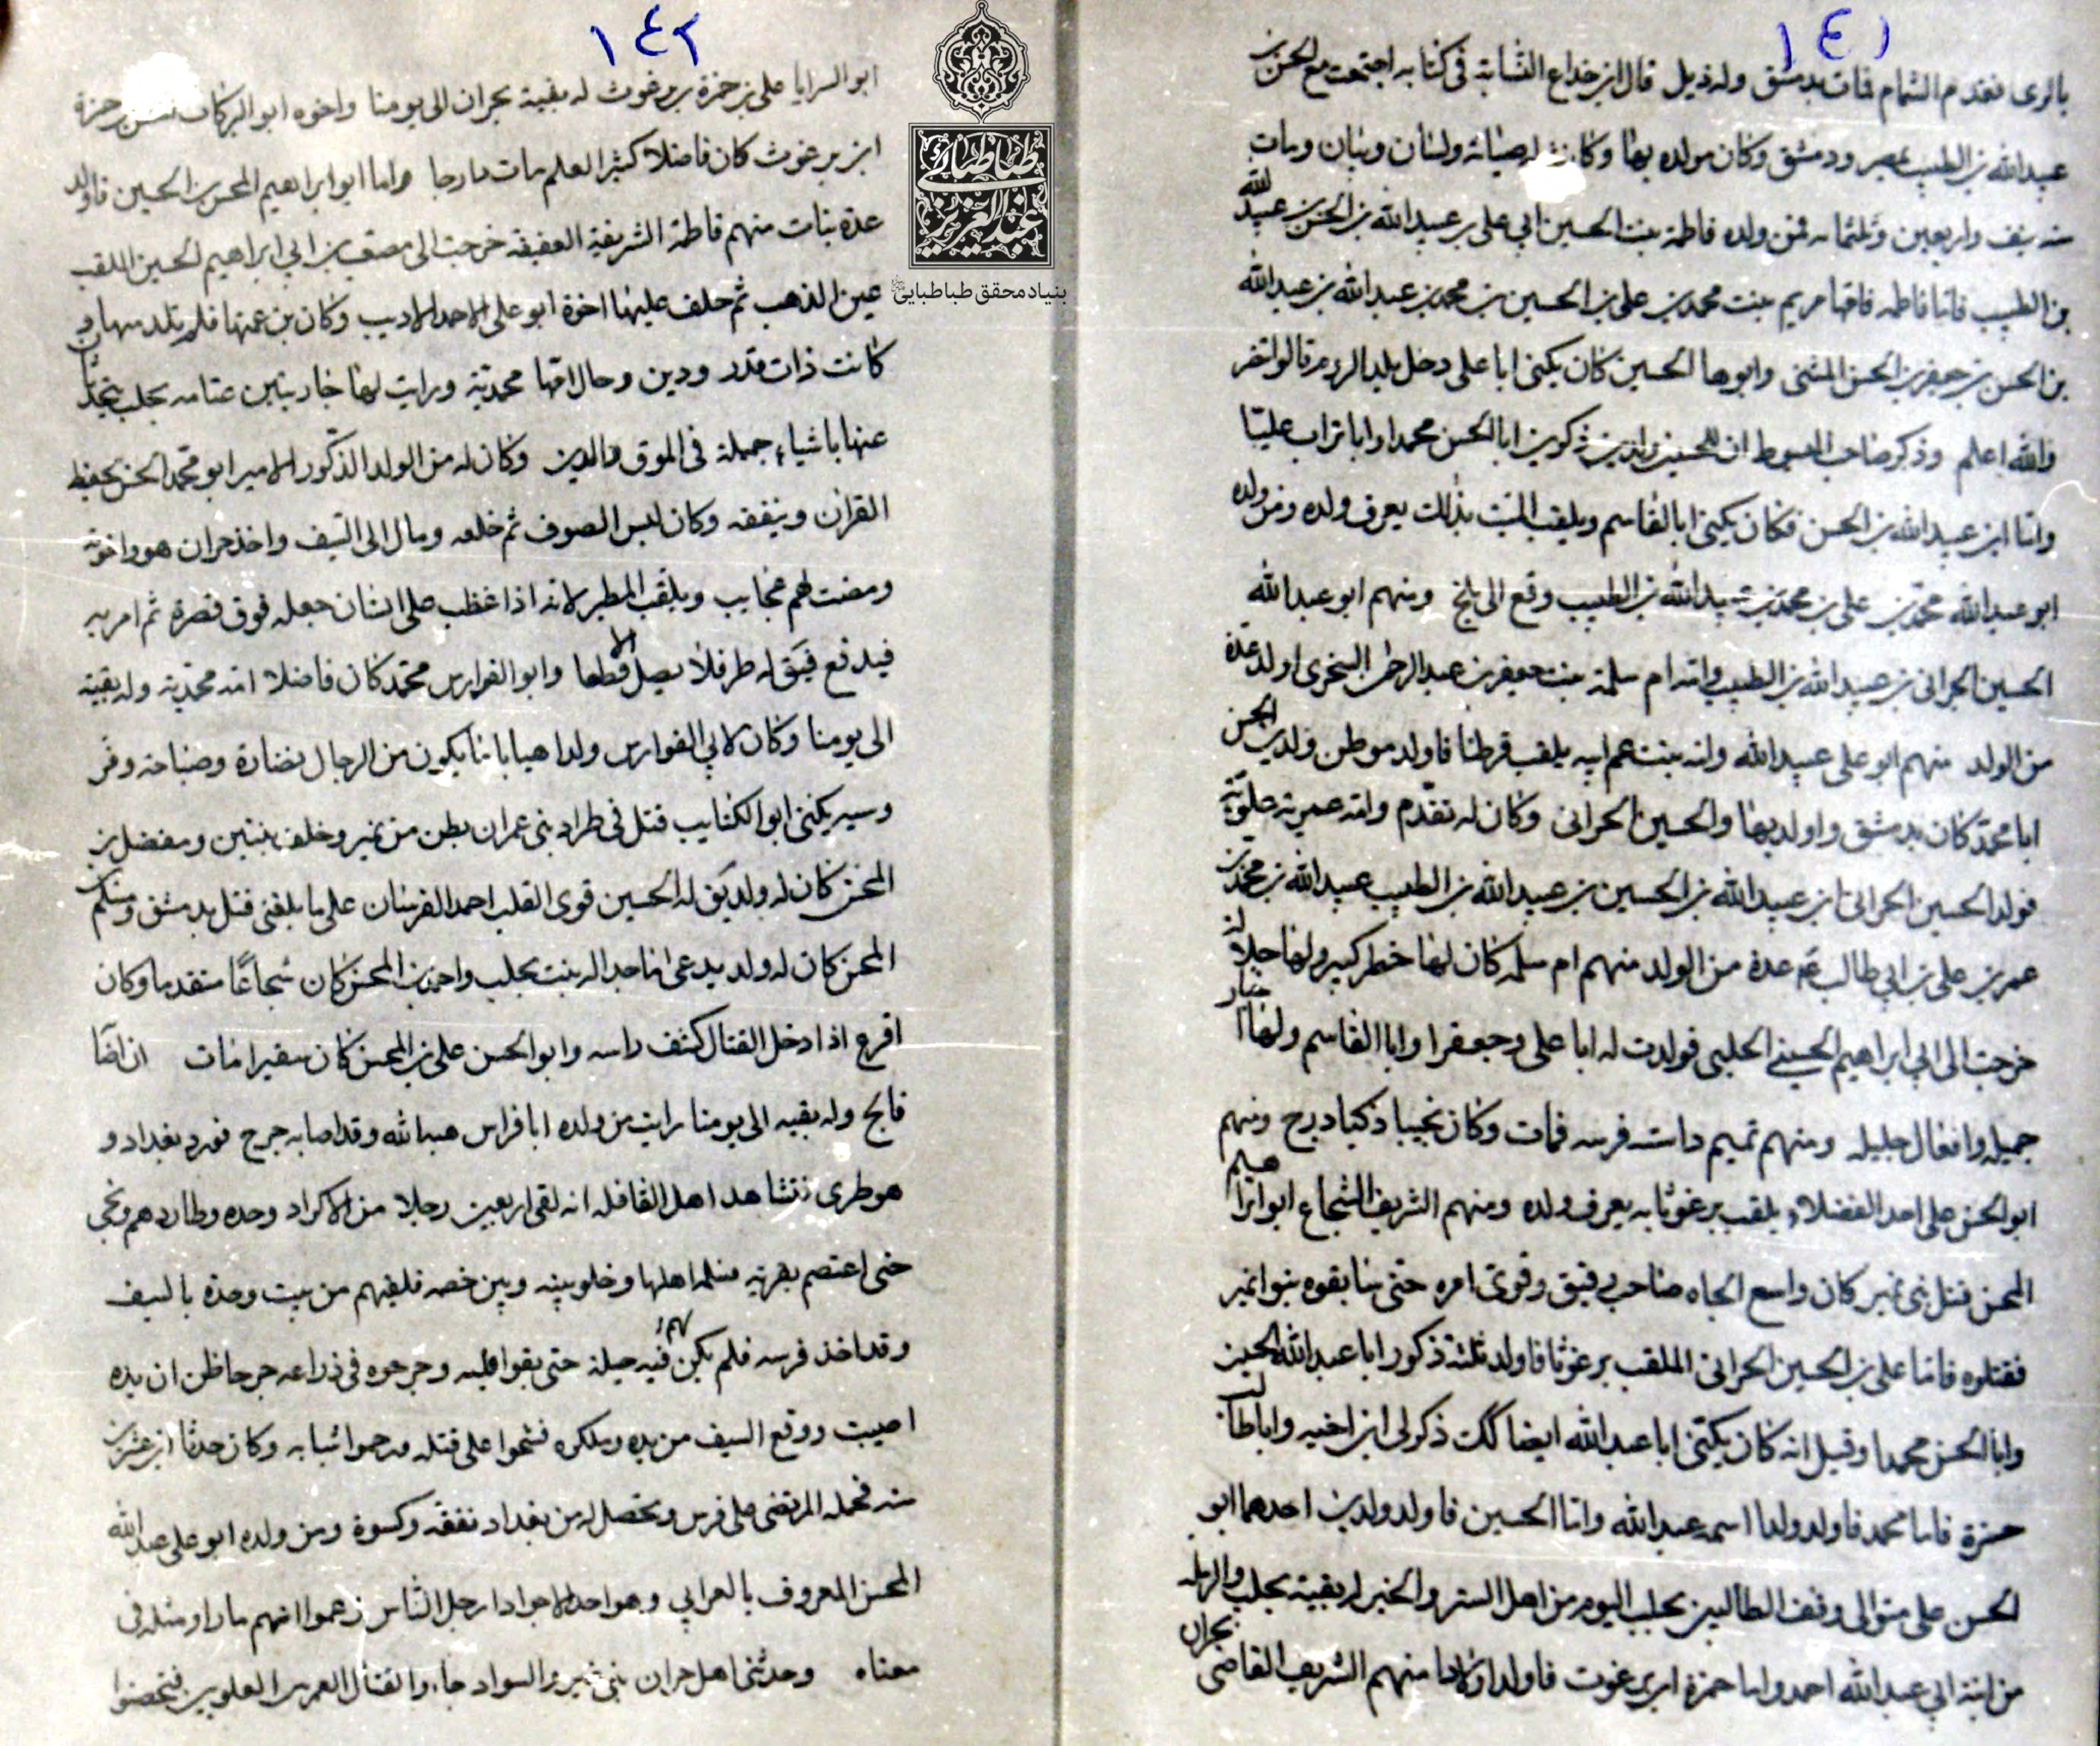 ١٤١
بالرى فقدم الشام فمات بدمشق وله ذيل قال ابن خداع النسابة فى كتابه اجتمعت مع الحسن بن
عبيدالله بن الطبيب بمصر ودمشق وكان مولده بها وكانت له صيانه ولسان وبيان ومات
سنه نيف واربعين وثلثمائه فمن ولده فاطمة بنت الحسين ابي على بن عبيدالله بن الحسن بن عبيدالله
بن الطبيب فاما فاطمه فامها مريم بنت محمد بن على بن الحسين بن محمد بن عبدالله بن عبيدالله
بن الحسن بن جعفر بن الحسن المثنى وابوها الحسين كان يكنى ابا على دخل بلد الروم قالوا تنصر
والله اعلم وذكر صاحب المبسوط ان للحسين ولدين ذكرين ابا الحسن محمدا وابا تراب عليّا
وامّا ابن عبيدالله بن الحسن فكان يكنى ابا القاسم ويلقب الميت بذلك يعرف ولده ومن ولده
ابو عبدالله محمّد بن على بن محمد بن عبيدالله بن الطبيب وقع الى بلخ ومنهم ابو عبدالله
الحسين الحرانى بن عبيدالله بن الطبيب وامه ام سلمة بنت جعفر بن عبدالرحمن السخرى اولد عدة
من الولد منهم ابو على عبيدالله وامه بنت عم ابيه يلقب قرطنا فاولد موطن ولدى الحسن
ابا محمّد كان بدمشق واولد بها والحسين الحرانى وكان له تقدّم وامه عمرية علويّة
فولد الحسين الحرانى ابن عبيدالله بن الحسين بن عبيدالله بن الطبيب عبيدالله بن محمد بن
عمر بن على بن ابي طالب ع عدة من الولد منهم ام سلمه كان لها خطر كبير ولها جلالة
خرجت الى ابي ابراهيم الحسينى الحلبى فولدت له ابا على وجعفرا وابا القاسم ولها اخبار
جميله وافعال جليله ومنهم تميم داسته فرسه فمات وكان نجيبا ذكيا درج ومنهم
ابو الحسن على احد الفضلاء يلقب برغوثا به يعرف ولده ومنهم الشريف الشجاع ابو ابراهيم
المحسن قتل بنى نمير كان واسع الجاه صاحب فنيق وقوى امره حتى سابقوه بنوا نمير
فقتلوه فاما على بن الحسين الحرانى الملقب برغوثا فاولد ثلثة ذكور ابا عبدالله الحسين
وابا الحسن محمدا وقيل انه كان يكنى ابا عبدالله ايضا كك ذكر لى ابن اخيه وابا طالب
حمزة فاما محمد فاولد ولدا اسمه عبدالله واما الحسين فاولد ولدين احدهما ابو
الحسن على متولى وقف الطالبين بحلب اليوم من اهل الستر والخير له بقية بحلب والرمله
من ابنة ابي عبدالله احمد واما حمزة ابن برغوث فاولد اولادا منهم الشريف القاضى بحران
١٤٢
ابو السرايا على بن حمزة بن برغوث له بقية بحران الى يومنا واخوه ابو البركات بن حمزة
ابن برغوث كان فاضلا كثير العلم مات دارجا واما ابو ابراهيم المحسن بن الحسين فاولد
عدة بنات منهم فاطمة الشريفة العفيفه خرجت الى مصعب بن ابي ابراهيم الحسين الملقب
عين الذهب ثم خلف عليها اخوه ابو على الاحمد الاديب وكان بن عمتها فلم تلد منهما و
كانت ذات قدر ودين وحال امها محمدية ورايت لها جاريتين عتامه بحلب يتحدثان
عنها باشياء جميلة فى المروق والدين وكان له من الولد الذكور الامير ابو محمّد الحسن يحفظ
القران ويتفقه وكان لبس الصوف ثم خلعه ومال الى السيف واخذ حران هو واخوته
ومضت لهم عجايب ويلقب المطير لانه اذا غضب على انسان جعله فوق قصره ثم امر به
فيدفع فيق له طر فلا يصل الا قطعا وابو الفوارس محمّد كان فاضلا امه محمّدية وله بقية
الى يومنا وكان لابي الفوارس ولدا هيابا ما يكون من الرجال نضارة وصباحه وفر
وسيه يكنى ابو الكتايب قتل فى طراد بنى عمران بطن من نمير وخلف بنتين ومفضل بن
المحسن كان له ولد يق له الحسين قوى القلب احد الفرسان على ما بلغنى قتل بدمشق ومسلم بن
المحسن كان له ولد يدعى ماجدا له بنت بحلب واحمد بن المحسن كان شجاعًا متقدما وكان
اقرع اذا دخل القتال كشف راسه وابو الحسن على بن المحسن كان سفيرا مات ان اصا
فالج وله بقيه الى يومنا رايت من ولده ابا فراس هبة الله وقد اصابه جرح فورد بغداد و
هو طرى فتشاهد اهل القافله انه لقى اربعين رجلا من الاكراد وحده وطاردهم ونجى
حتى اعتصم بقريه فسلمه اهلها وخلو بينه وبين خصمه فلقيهم من بيت وحدة بالسيف
وقد اخذ فرسه فلم يكن لهم فيه حيلة حتى بقوا قلبه وجرحوه فى ذراعه جرحا ظن ان يده
اصيبت ووقع السيف من يده وملكوه فشحوا على قتله ورحموا شبابه وكان حدثا ابن عشرين
سنه فحمله المرتضى على فرس وتحصل له من بغداد نفقه وكسوة ومن ولده ابو على عبدالله
المحسن المعروف بالعرابي وهو احد الاجواد ارجل الناس زعموا انهم ما راو مثله فى
معناه وحدثنى اهل حران بنى نمير والسواد جاءوا لقتال العمرين العلويين فتحصنوا
طباطبائى
عبدالعزيز
بنیاد محقق طباطبایی